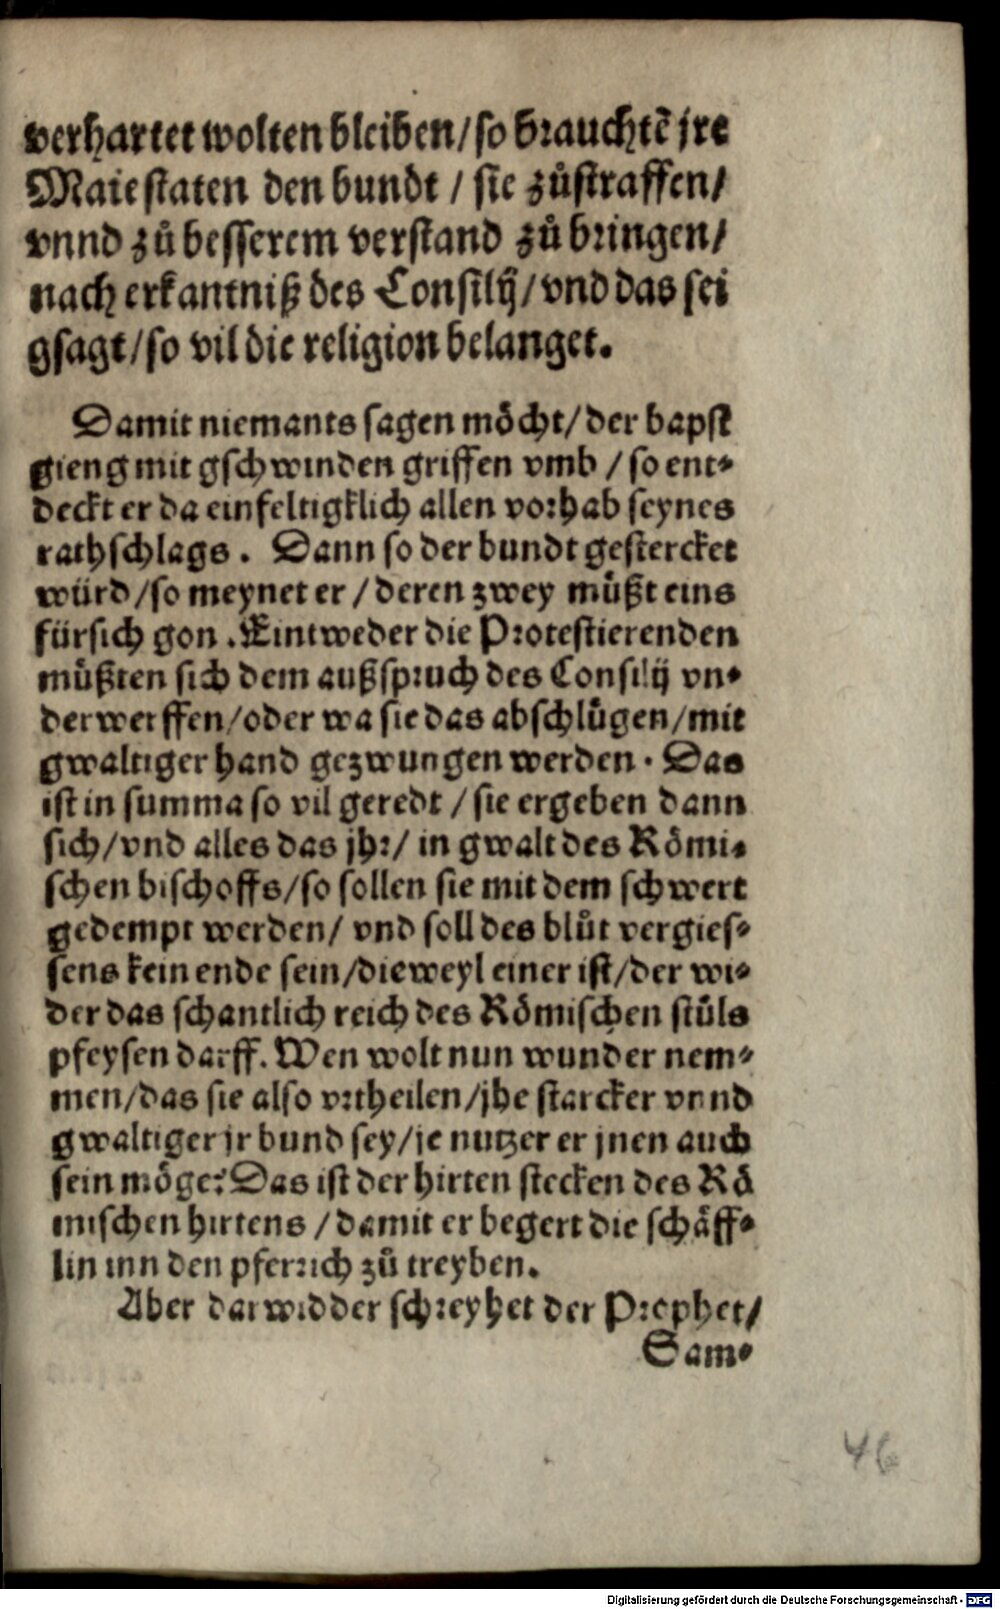 verhartet wolten bleiben/so brauchtē jre
Maiestaten den bundt / sie zůstraffen/
vnnd zů besserem verstand zů bringen/
nach erkantniß des Consilij/vnd das sei
gsagt/so vil die religion belanget.
Damit niemants sagen möcht/der bapst
gieng mit gschwinden griffen vmb / so ent⸗
deckt er da einfeltigklich allen vorhab seynes
rathschlags. Dann so der bundt gestercket
würd/so meynet er/deren zwey müßt eins
fürsich gon. Eintweder die Protestierenden
müßten sich dem außspruch des Consilij vn⸗
derwerffen/oder wa sie das abschlügen/mit
gwaltiger hand gezwungen werden. Das
ist in summa so vil geredt / sie ergeben dann
sich/vnd alles das jhr/ in gwalt des Römi⸗
schen bischoffs/so sollen sie mit dem schwert
gedempt werden/ vnd soll des blůt vergies⸗
sens kein ende sein/dieweyl einer ist/der wi⸗
der das schantlich reich des Römischen stůls
pfeysen darff. Wen wolt nun wunder nem⸗
men/das sie also vrtheilen/jhe starcker vnnd
gwaltiger jr bund sey/je nutzer er jnen auch
sein möge? Das ist der hirten stecken des Rö
mischen hirtens / damit er begert die schäff⸗
lin inn den pferrich zů treyben.
Aber darwidder schreyhet der Prophet/
Sam⸗
46
Digitalisierung gefördert durch die Deutsche Forschungsgemeinschaft - DFG